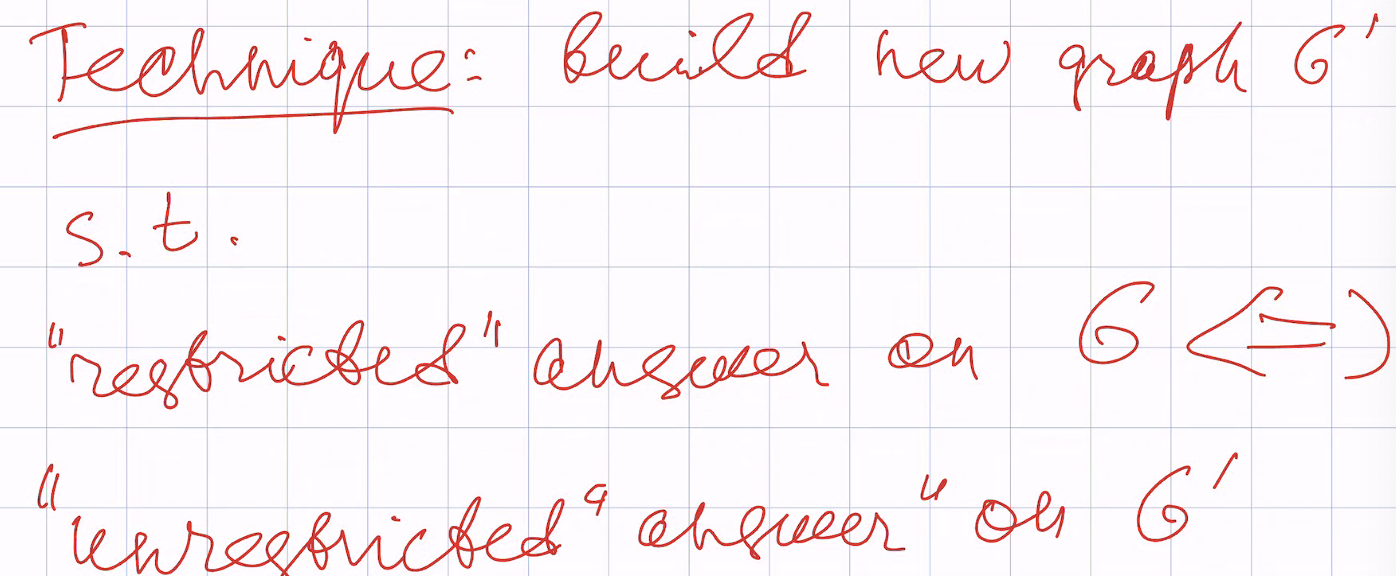 Technique: build new graph G'
s.t.
"restricted" answer on G <=>
"unrestricted" answer" on G'